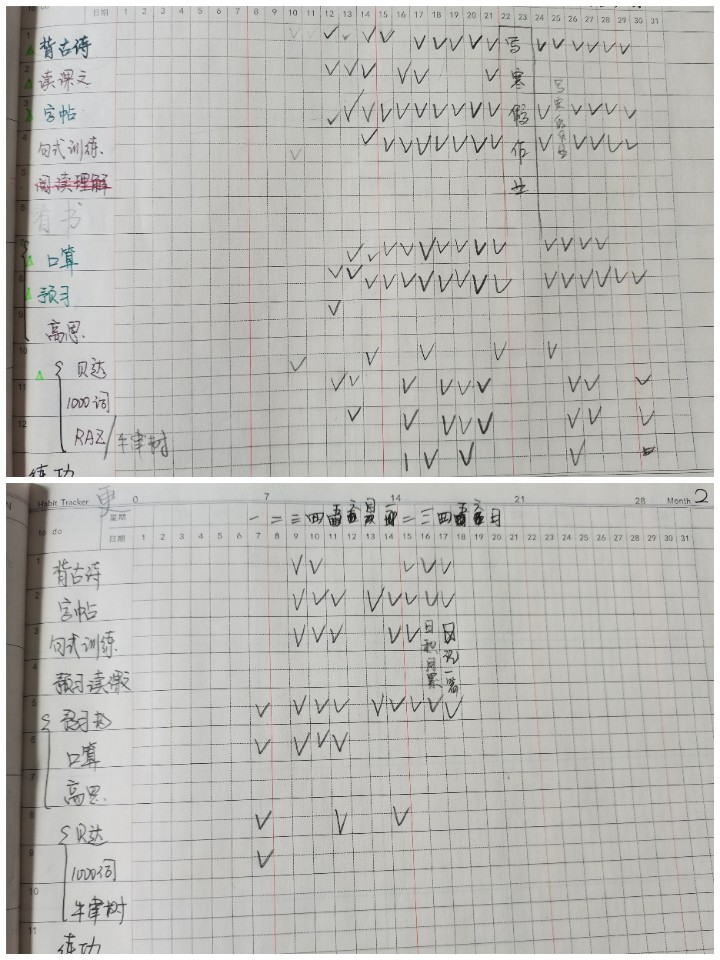 to do 日期 1 2 3 4 5 6 7 8 9 10 11 12 13 14 15 16 17 18 19 20 21 22 23 24 25 26 27 28 29 30 31
1 背古诗
2 读课文
3 字帖
4 句式训练
5 阅读理解
6 有书
口算
8 预习
9 高思
10 贝达
11 1000词
12 RAZ/牛津树
练功
写寒假作业
Habit Tracker 0 7 14 21 28 Month 2
星期 一 二 三 四 五 六 日 一 二 三 四 五 六 日
to do 日期 1 2 3 4 5 6 7 8 9 10 11 12 13 14 15 16 17 18 19 20 21 22 23 24 25 26 27 28 29 30 31
1 背古诗
2 字帖
3 句式训练
4 预习读
5 预习
6 口算
7 高思
8 贝达
9 1000词
10 牛津树
11 练功
日积月累
日记一篇